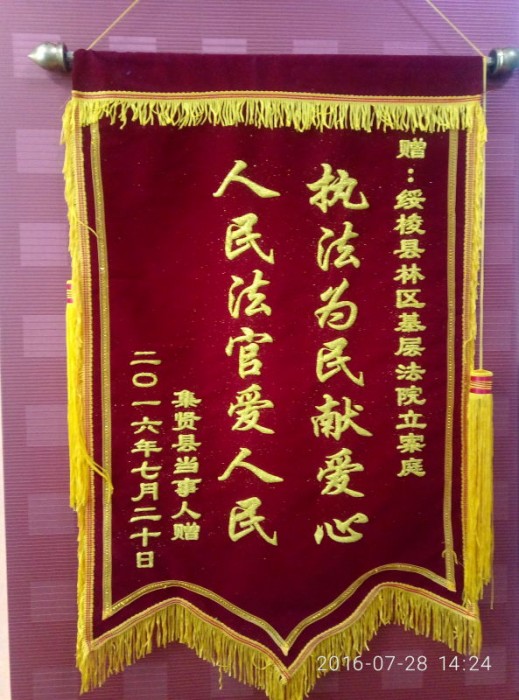 赠：绥棱县林区基层法院立案庭
执法为民献爱心
人民法官爱人民
集贤县当事人赠
二〇一六年七月二十日
2016-07-28 14:24